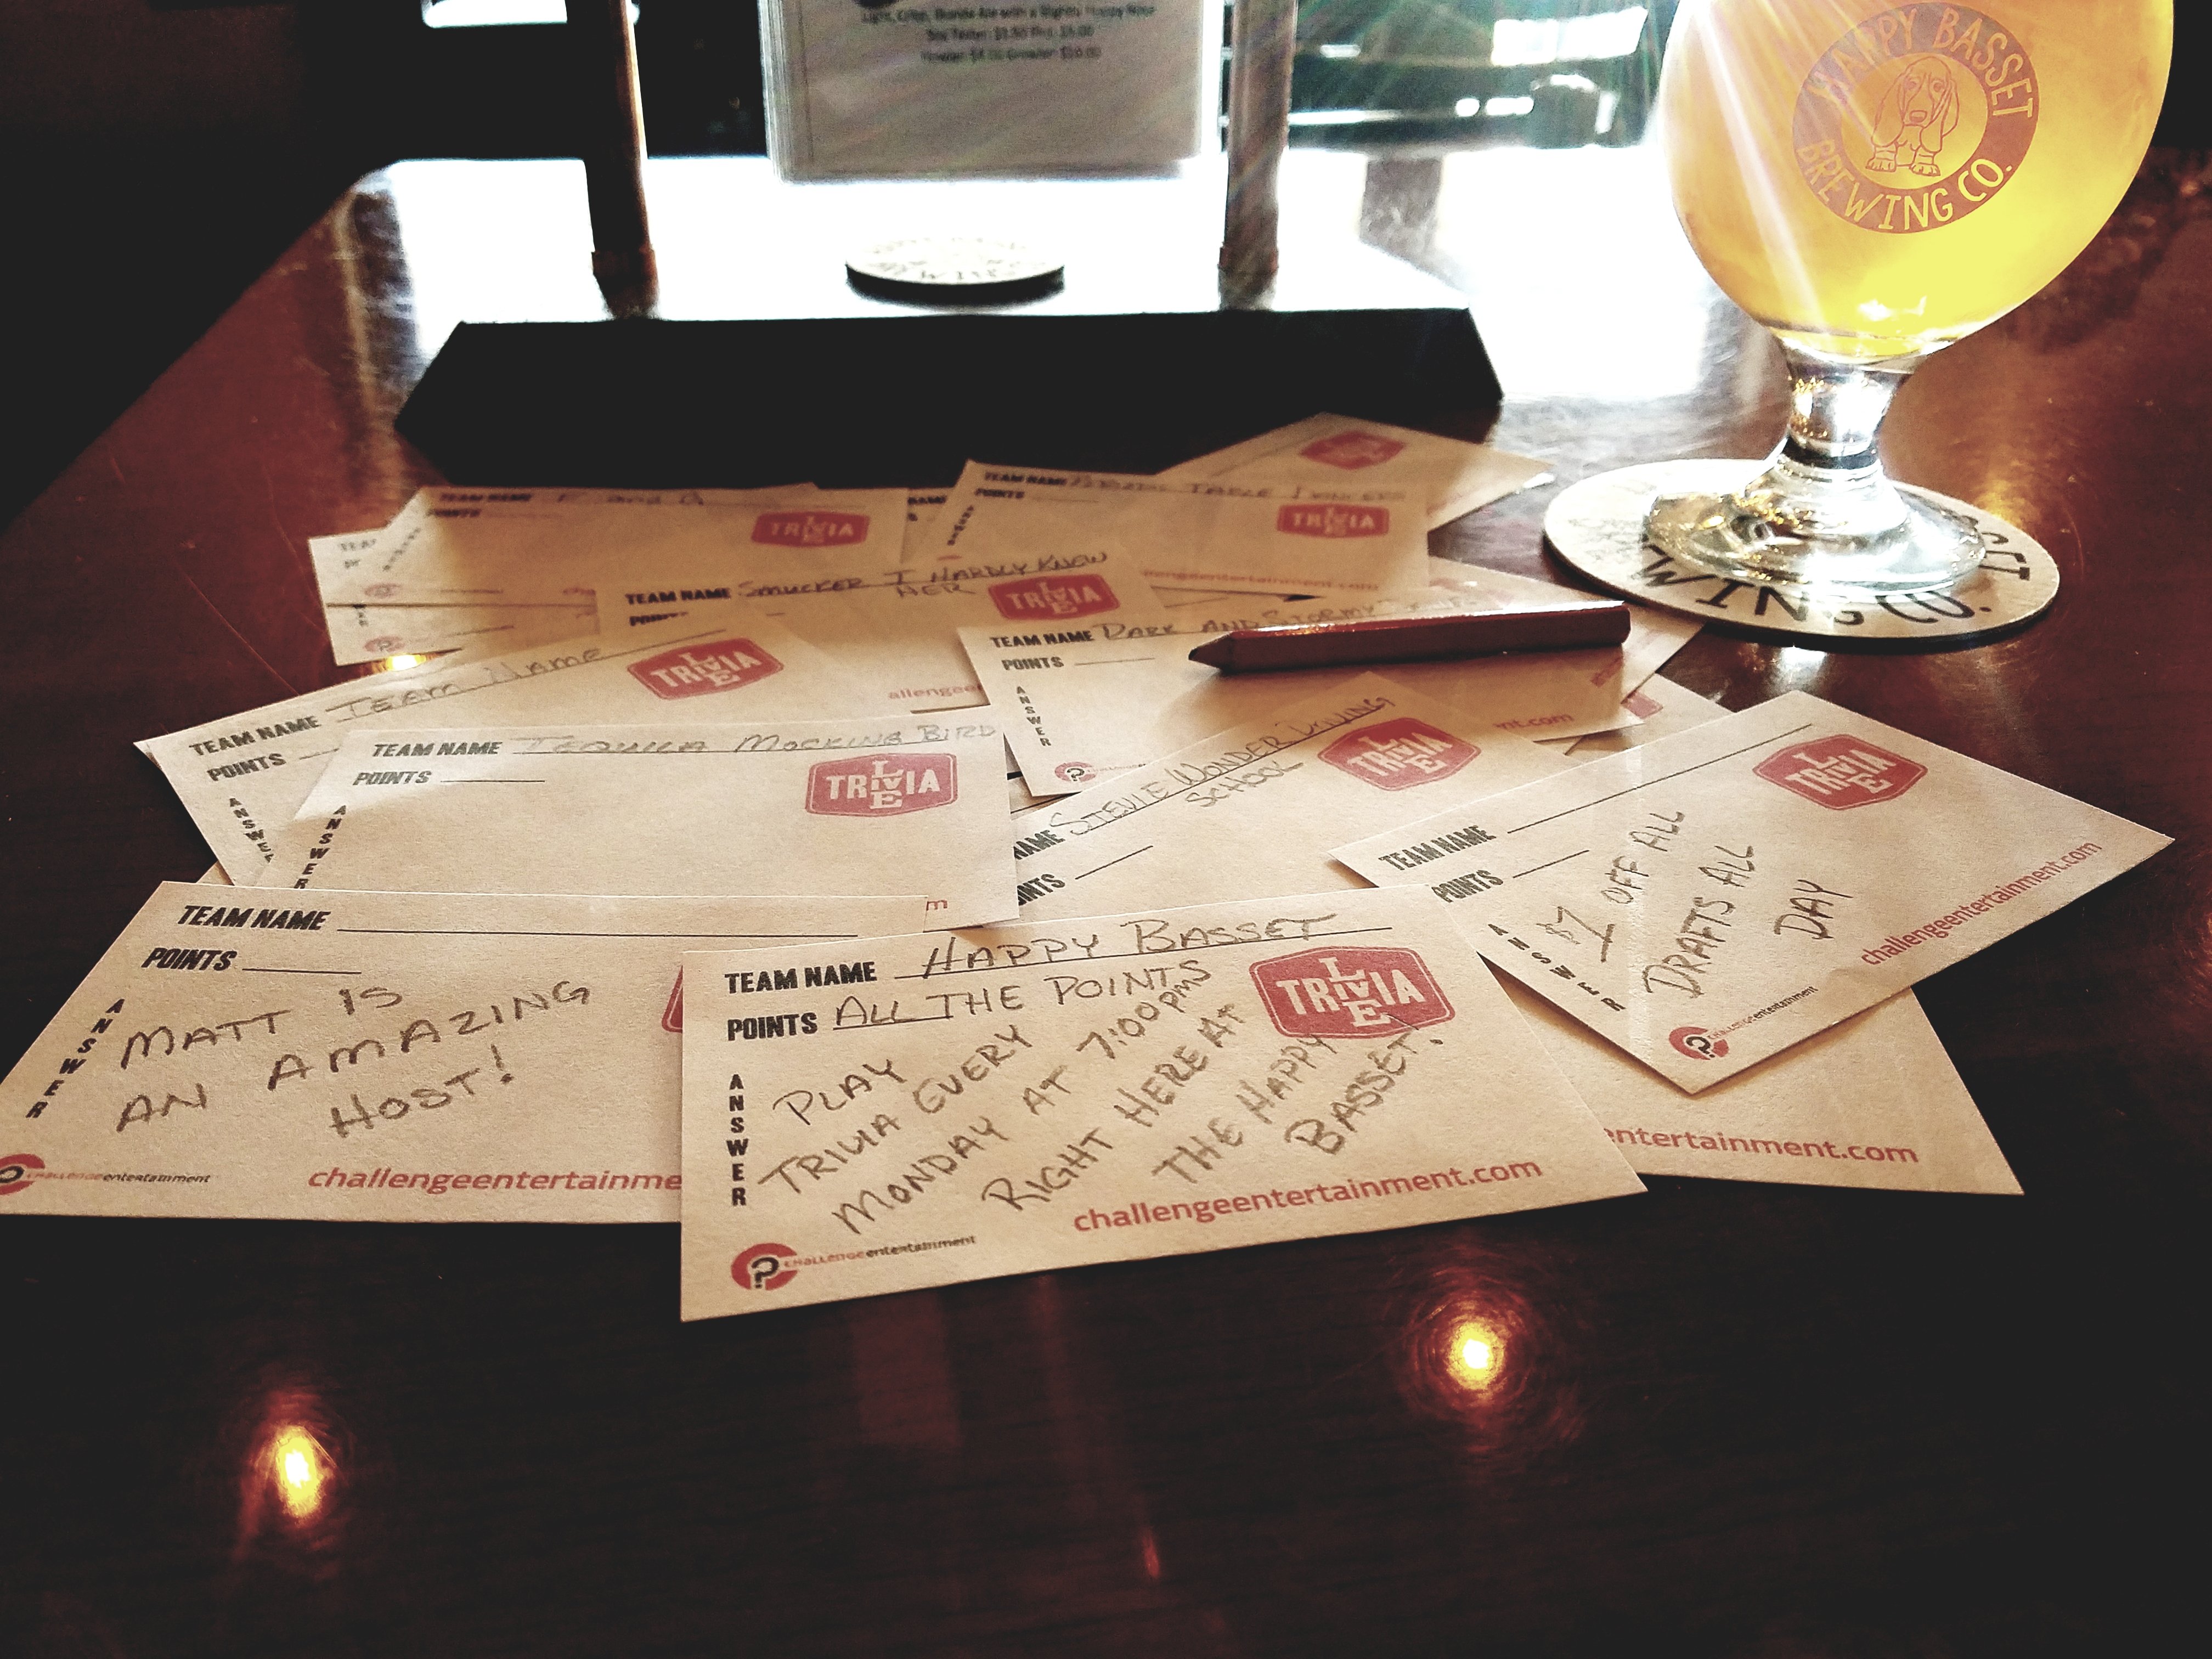 Light, Crisp, Blonde Ale with a Slightly Hoppy Nose
HAPPY BASSET
BREWING CO.
TEAM NAME
POINTS
TRIVIA
LIVE
TEAM NAME
POINTS
TRIVIA
LIVE
TEAM NAME SMUCKER I HARDLY KNEW
HER
TRIVIA
LIVE
TEAM NAME DARK AND STORMY
POINTS
ANSWER
TEAM NAME TEAM NAME
POINTS
ANSWER
TRIVIA
LIVE
TEAM NAME TEQUILA MOCKING BIRD
POINTS
ANSWER
TRIVIA
LIVE
NAME STEVIE WONDER DRIVING
SCHOOL
TRIVIA
LIVE
TEAM NAME
POINTS
ANSWER
$1 OFF ALL
DRAFTS ALL
DAY
TRIVIA
LIVE
challengeentertainment.com
CHALLENGEentertainment
TEAM NAME
POINTS
ANSWER
MATT IS
AN AMAZING
HOST!
CHALLENGEentertainment
challengeentertainme
TEAM NAME HAPPY BASSET
POINTS ALL THE POINTS
ANSWER
PLAY
TRIVIA EVERY
MONDAY AT 7:00PMS
RIGHT HERE AT
THE HAPPY
BASSET!
TRIVIA
LIVE
challengeentertainment.com
CHALLENGEentertainment
entertainment.com